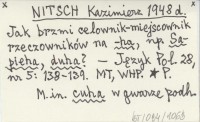 NITSCH Kazimierz 1948 d.
Jak brzmi celownik-miejscownik
rzeczowników na -ha, np Sa-
pieha, duha? – Język Pol. 28,
nr 5: 138-139. MT, WHP. *P.
M.in. cuha w gwarze podh.